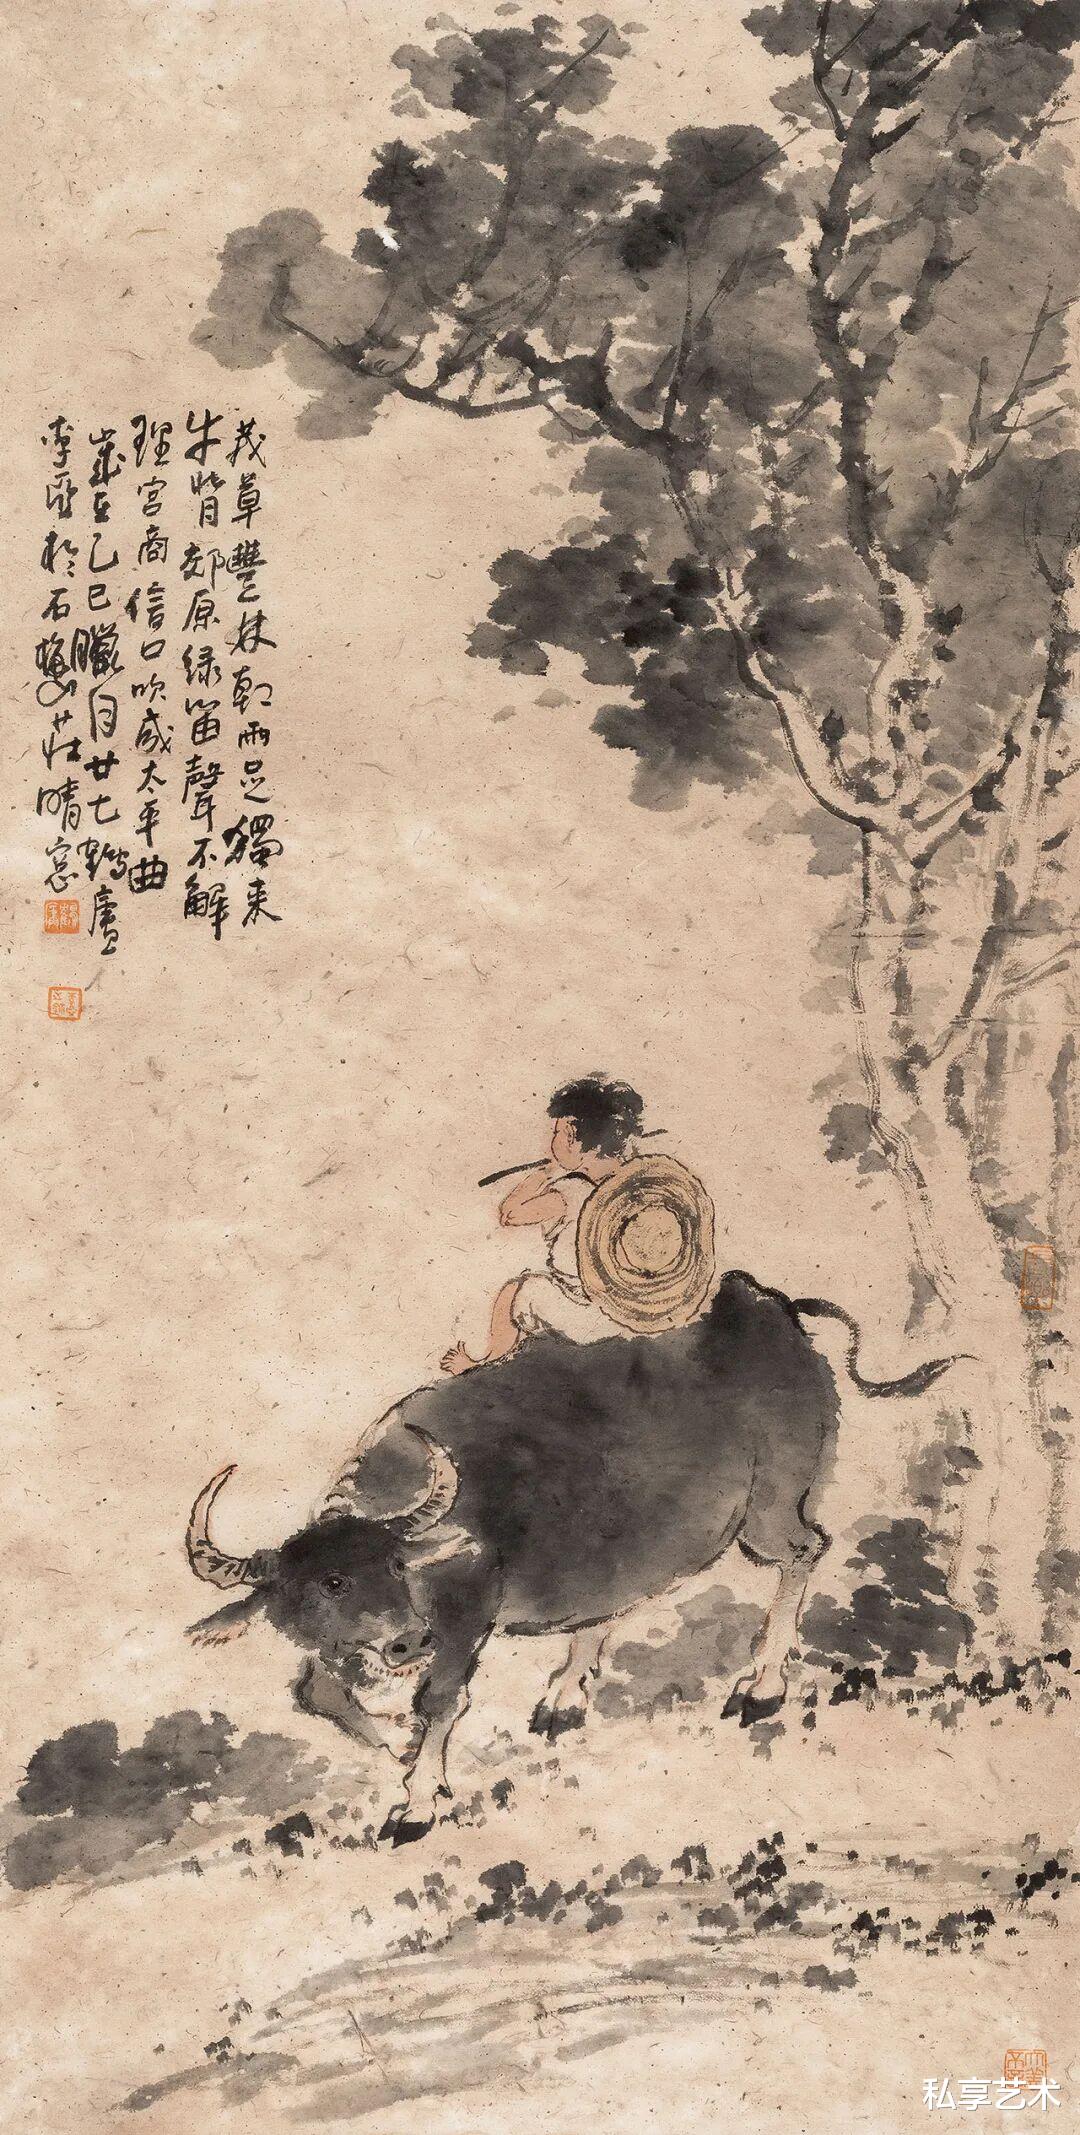 茂草豐林朝雨足獨来
牛背郊原绿笛聲不解
理宫商信口吹成太平曲
歲在乙巳臘月廿七鶴廬
李亞於石梅山莊晴窓
私享艺术